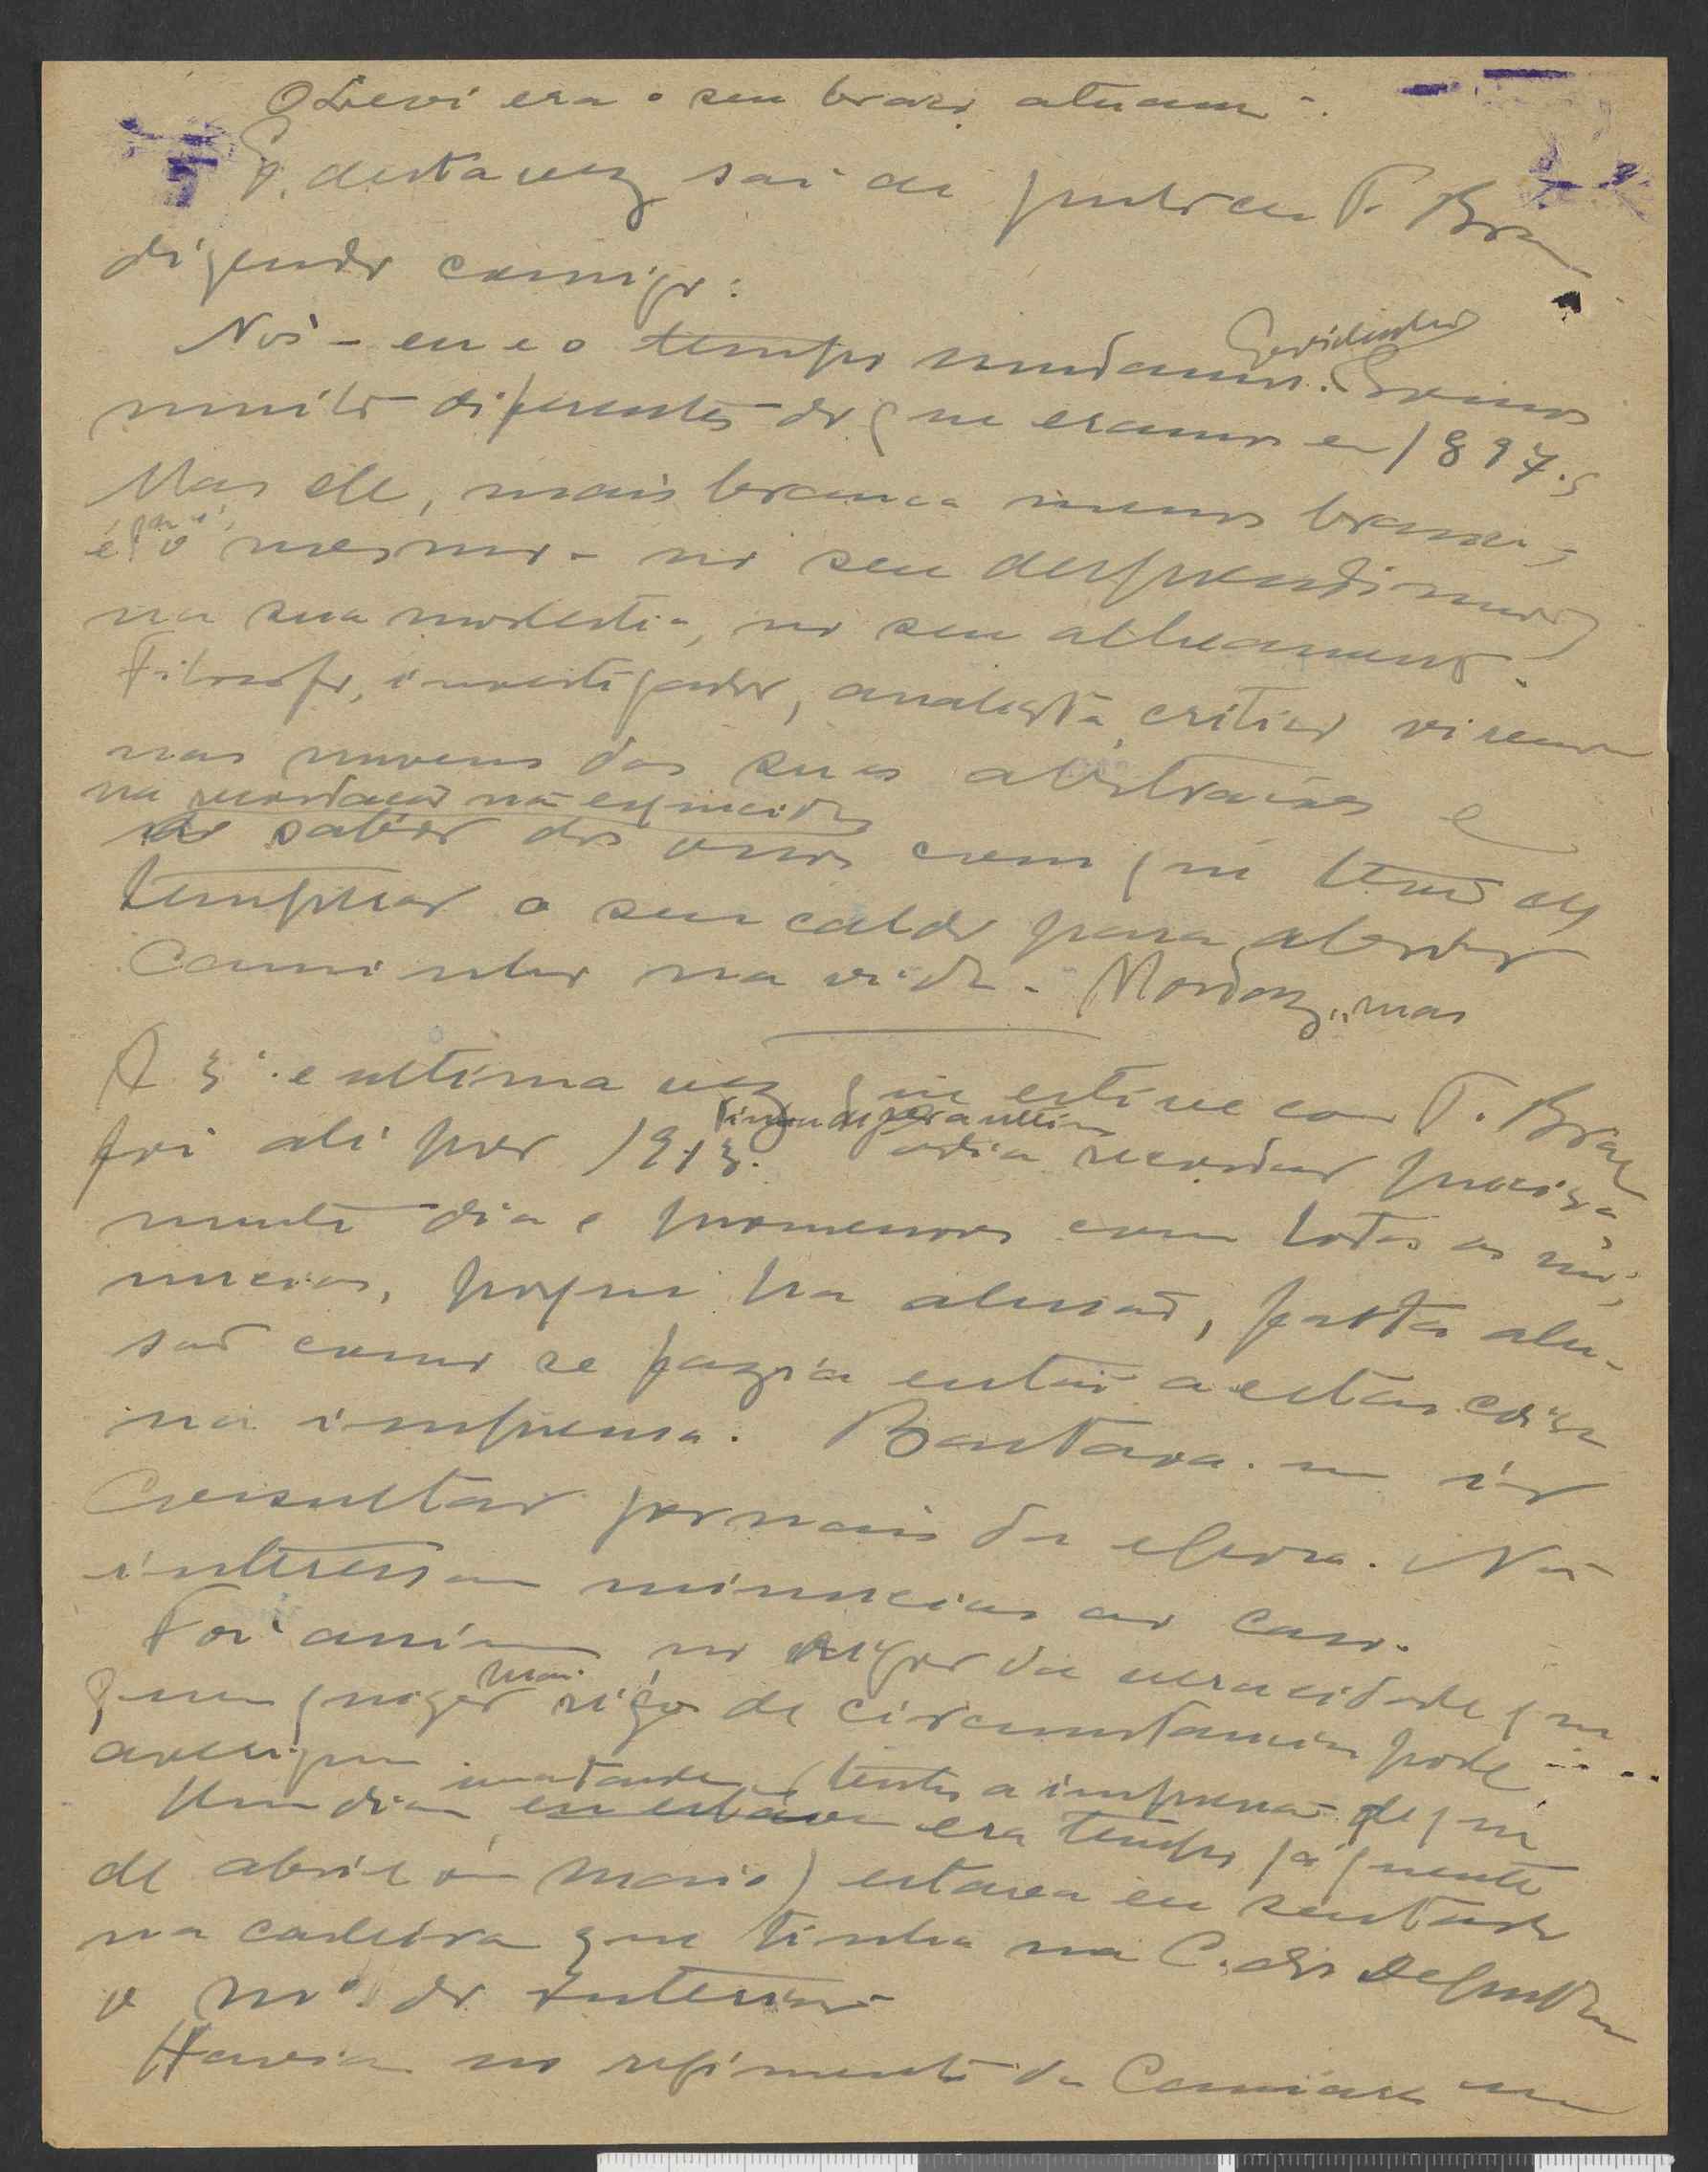 O Levi era o seu braço
E, desta vez sai de T. Bra
dizendo comigo:
Nós - eu e o tempo mudamos. Evidentes Eramos
muito diferentes do que eramos em 1897.
Mas ele, mais branca menos branca,
é o mesmo - no seu desprendimento
na sua modestia, no seu alheamento.
Filosofo, investigador, analista, critico vivendo
nas nuvens das suas abstrações e
na recordação não esquecida
do sabor dos ossos com que teve de
temperar o seu caldo para abrir
caminho na vida. Mordaz, mas
A 3ª e ultima vez que estive com T. Braga
foi ali por 1913. Podia recordar precisa-
mente dia e promenores com todas as mi-
nucias, porque ha alusão, farta alu-
são como se fazia então a estas coisas
na imprensa. Bastava-me ir
consultar jornais da epoca. Não
interessam minucias ao caso.
Foi assim no rigor da veracidade que
quem quizer mais rigor de circumstancias pode
averiguar
Um dia, uma tarde eu estava era tempo já quente
de abril ou maio) estava eu sentado
na cadeira que tinha na C. dos Deputados
o mº do Interior
Havia no regimento da Camara um